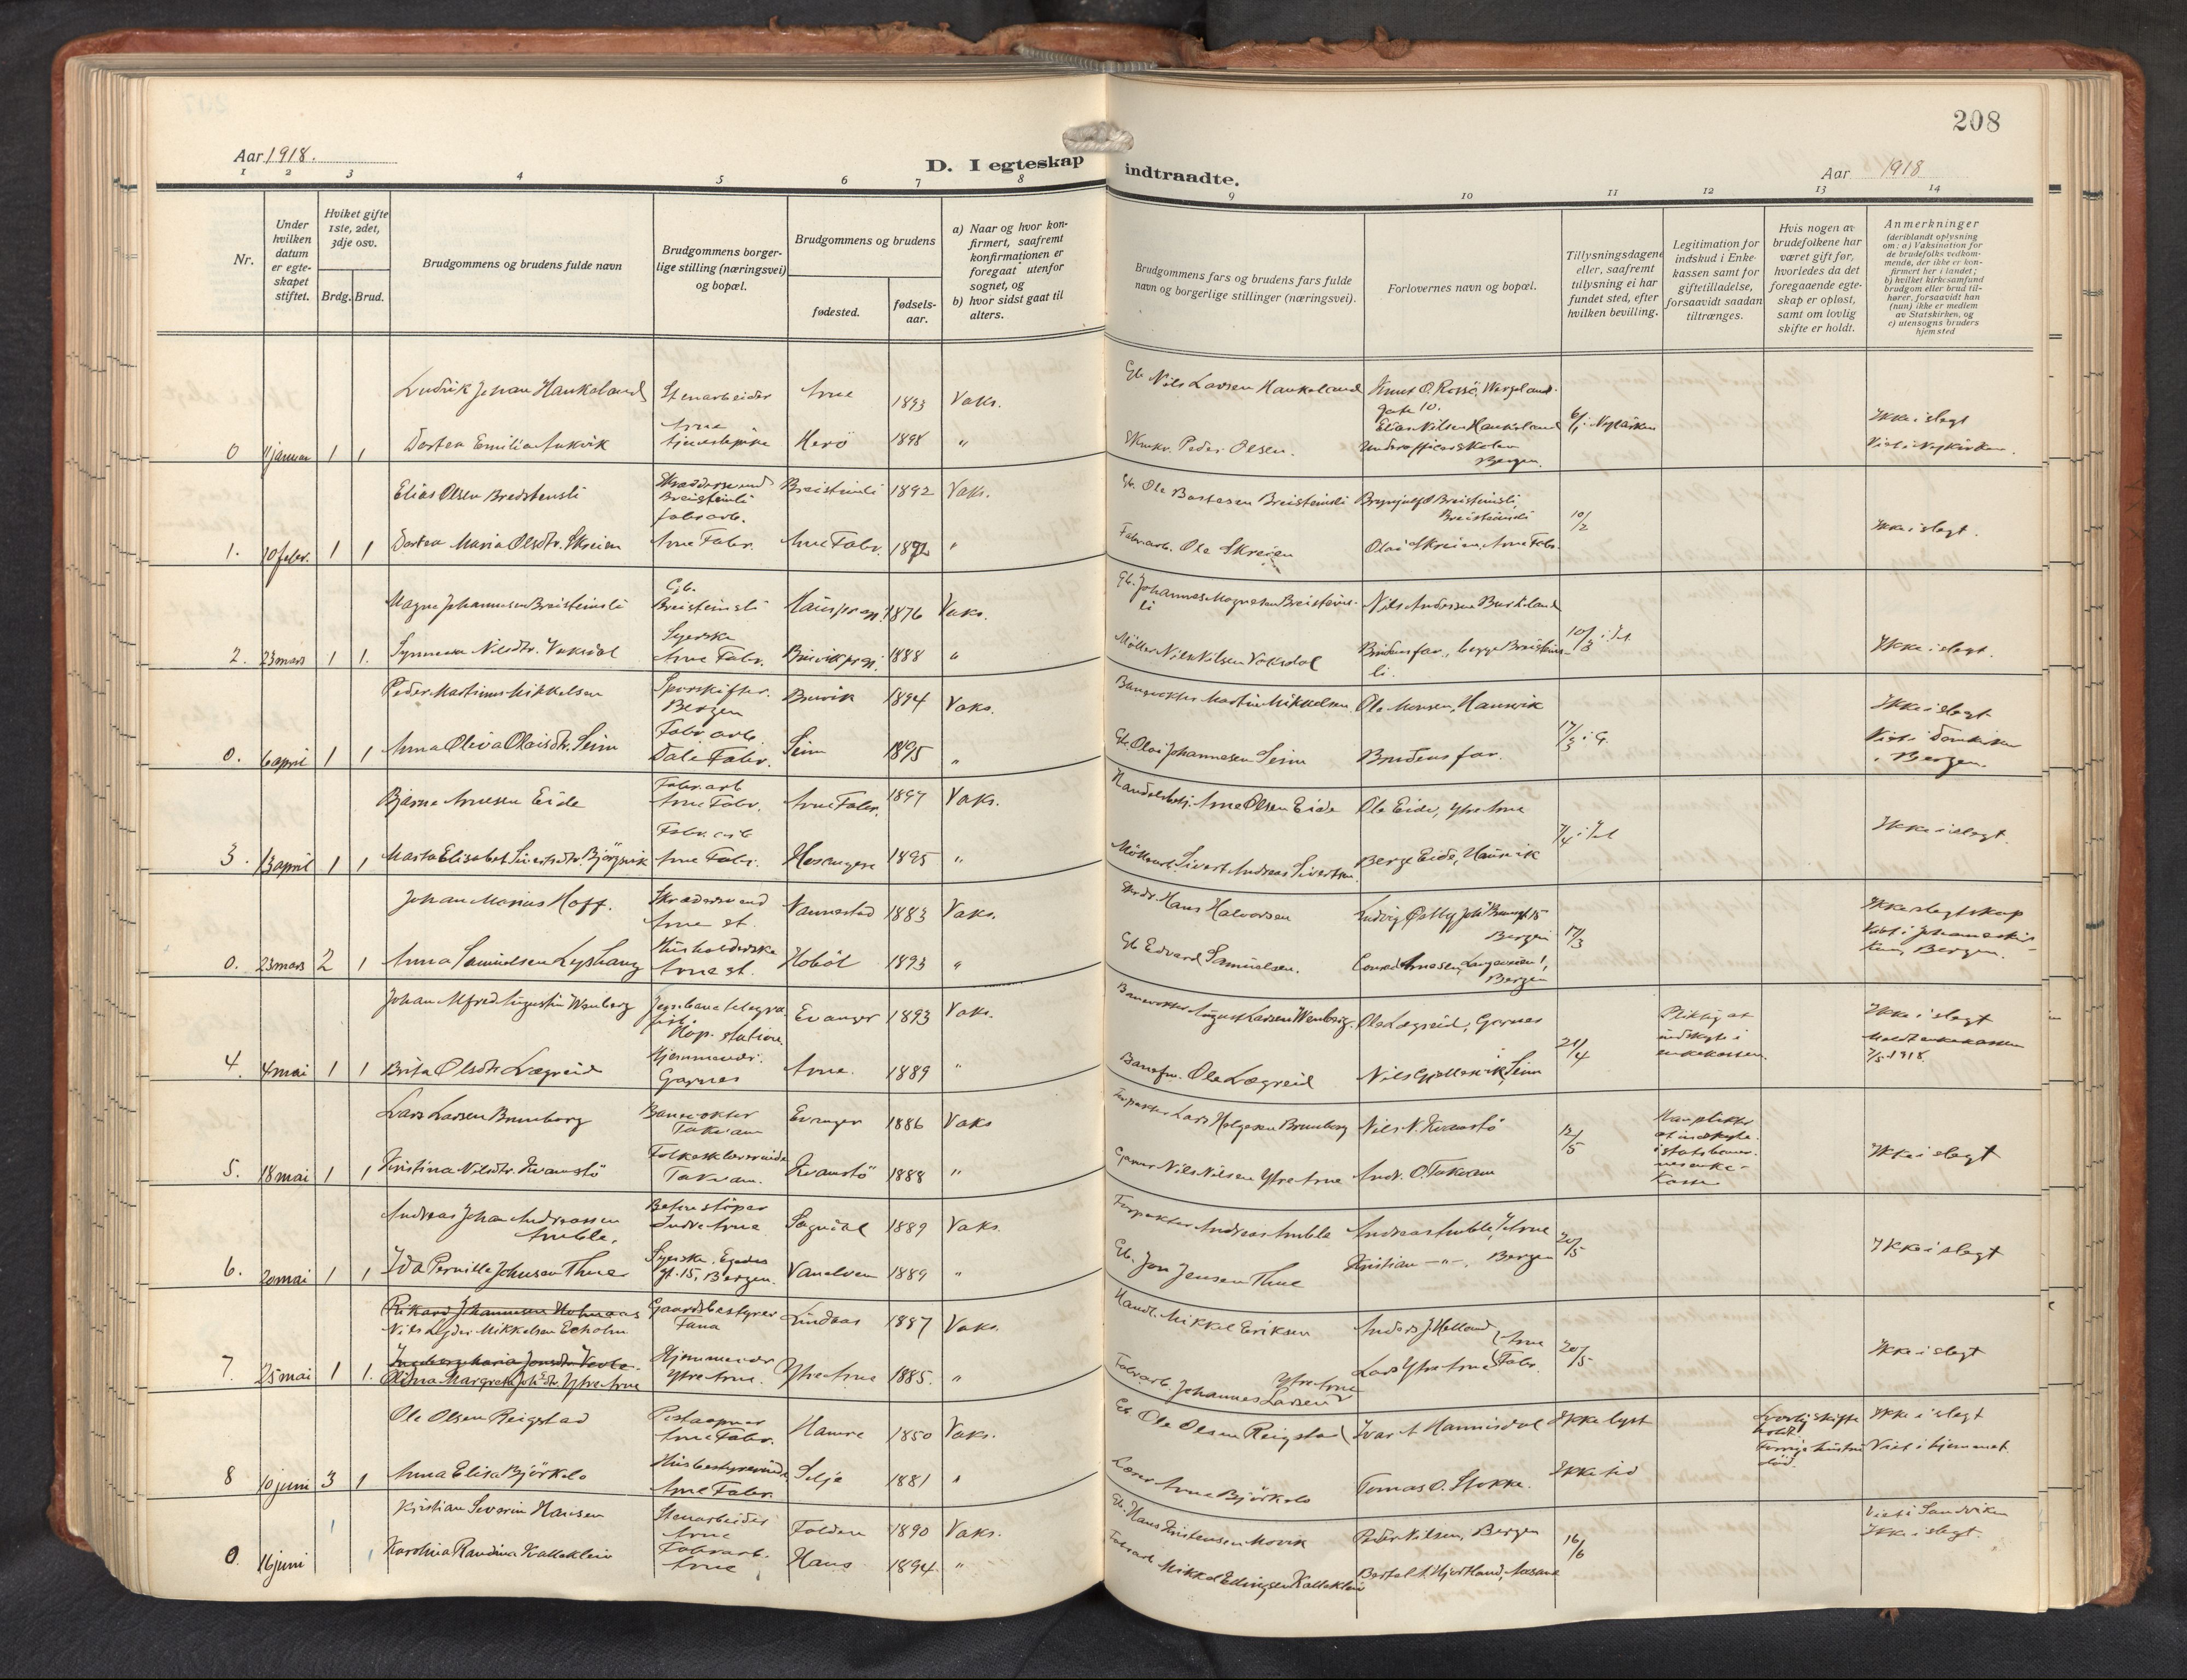 208
Aar 1918.
D. I egteskap indtraadte.
Aar 1918
1 2 3 4 5 6 7 8 9 10 11 12 13 14
Nr.
Under hvilken datum er egteskapet stiftet.
Hviket gifte 1ste, 2det, 3dje osv.
Brdg. Brud.
Brudgommens og brudens fulde navn
Brudgommens borgerlige stilling (næringsvei) og bopæl.
Brudgommens og brudens
fødested.
fødselsaar.
a) Naar og hvor konfirmert, saafremt konfirmationen er foregaat utenfor sognet, og
b) hvor sidst gaat til alters.
Brudgommens fars og brudens fars fulde navn og borgerlige stillinger (næringsvei).
Forlovernes navn og bopæl.
Tillysningsdagene eller, saafremt tillysning ei har fundet sted, efter hvilken bevilling.
Legitimation for indskud i Enkekassen samt for giftetilladelse, forsaavidt saadan tiltrænges.
Hvis nogen av brudefolkene har været gift før, hvorledes da det foregaaende egteskap er opløst, samt om lovlig skifte er holdt.
Anmerkninger
(deriblandt oplysning om: a) Vaksination for de brudefolks vedkommende, der ikke er konfirmert her i landet; b) hvilket kirkesamfund brudgom eller brud tilhører, forsaavidt han (hun) ikke er medlem av Statskirken, og c) utensogns bruders hjemsted
Ludvik Johan Haukeland Stenarbeider Arne 1893 Vaks. Gb. Nils Larsen Haukeland Knut O. Rossö, Wergelandgate 10.
0 11 januar 1 1 Dortea Emilia Aukvik Arne tjenestepike Herö 1898 " Peder Olsen. Elias Nilsen Haukeland Underofficerskolen Bergen. 6/1 i Nykirken Ikke i slegt Viet i Nykirken.
Elias Olsen Breistensli Skræddersvend Breisteinli Breisteinli 1892 Vaks. Gb. Ole Bastesen Breisteinsli Brynjulf O Breisteinsli, Breisteinsli
1. 10 febr. 1 1 Dortea Maria Olsdtr. Skreien fabrarb. Arne Fabr. Arne Fabr. 1892 " Fabrarb. Ole Skreien Olai Skreien, Arne Fabr. 10/2 Ikke i slegt.
Magne Johannesen Breisteinsli Gb. Breisteinsli Haus prgj. 1876 Vaks. Gb. Johannes Magnesen Breisteinsli Nils Andersen Burkeland
2. 23 mars 1 1. Synneva Nilsdtr. Vaksdal Syerske Arne Fabr. Bruvik prgj. 1888 " Möller Nils Nilsen Vaksdal Brudens far, begge Breisteinsli. 10/3 Ikke i slegt.
Peder Martinus Mikkelsen Sporskifter. Bergen Bruvik 1894 Vaks. Banevokter Martin Mikkelsen. Ole Monsen, Haunvik
0. 6 april 1 1 Anna Oliva Olaisdtr. Seim Fabr arb. Dale Fabr. Seim 1895 " Gb. Olai Johannesen Seim Brudens far. 17/3 i G. Ikke i slegt Viet i Domkirken i Bergen.
Bjarne Arnesen Eide Fabr. arb Arne Fabr. Arne Fabr. 1897 Vaks. Handelsbetj. Arne Olsen Eide Ole Eide, Ytre Arne
3. 13 april 1 1 Marta Elisabet Sivertsdtr. Björgvik Fabr. arb Arne Fabr. Hosanger 1895 " Möllearb. Sivert Andreas Sivertsen. Berge Eide, Haunvik 7/4 Ikke i slegt.
Johan Marius Hoff. Skræddersvend Arne st. Vannestad 1883 Vaks. Hans Halvorsen Ludvig Östby Bergen
0. 23 mars 2 1 Anna Samuelsen Husholderske Arne st. Hoböl 1893 " Gb Edvard Samuelsen. Conrad Arnesen, Bergen 17/3 Ikke slegtskap Viet i Johanneskirken, Bergen.
Johan Alfred Augustin Wenberg Jernbane telegrafist. Hop. station Evanger 1893 Vaks. Banevokter August Larsen Wenberg. Ole Lægreid, Garnes
4. 4 mai 1 1 Brita Olsdtr Lægreid Hjemmevær. Garnes Arne. 1889 " Banefm. Ole Lægreid Nils Seim 21/4 Pliktig at indskyte i enkekassen. Ikke i slegt Meldt enkekassen 7/5 1918.
Lars Larsen Brunborg Banevokter Takvam Evanger 1886 Vaks Forpakter Lars Helgesen Brunborg Nils N. Kvamstö
5. 18 mai 1 1 Kristina Nilsdtr. Kvamstö Folkeskolelærerinde Takvam. Kvamstö 1888 " Nils Nilsen Ytre Arne Andr. O. Takvam 12/5 Ikke i slegt
Andreas Johan Andreassen Amble. Betonstöper Indre Arne Sogndal 1889 Vaks. Forpakter Andreas Amble Andreas Amble, I. Arne
6. 20 mai 1 1 Ida Pernille Johnsen Thue Syerske. gt. 15, Bergen. Vanelven 1889 " Gb. Jon Jensen Thue Kristian —"—, Bergen 20/5 Ikke i slegt
Rikard Johannesen Holmaas Nils Lyder Mikkelsen Echolm Gaardsbestyrer Fana Lindaas 1887 Vaks. Handl. Mikkel Eriksen Anders J. Helland
7. 25 mai 1 1. Ingeborg Maria Jonsdtr Olina Margreta Johsdtr. Ytre Arne Hjemmevær Ytre Arne. Ytre Arne 1885. " Fabrarb. Johannes Larsen Ytre Arne Lars Ytre Arne Arne Fabr. 20/5 Ikke i slegt
Ole Olsen Reigstad Postaapner Arne Fabr. Hamre 1850 Vaks. Gb. Ole Olsen Reigstad Ivar A Hannisdal Ikke lyst Lovlig skifte holdt. Forrige hustru död. Ikke i slegt
8 10 juni 3 1 Anna Elisa Björkelo Husbestyrerinde Arne Fabr. Selje 1881 " Lærer Arne Björkelo Tomas O. Stokke. Ikke tid Viet i hjemmet
Kristian Severin Hansen Stenarbeider Arne Folden 1890 Vaks. Gb. Hans Kristensen Movik Peder Nilsen, Bergen Viet i Sandviken
0. 16 juni 1 1 Karolina Randina Kalleklein Fabrarb. Arne Haus 1894. " Fabrarb Mikkel Ellingsen Kalleklein Bertel A. Hjortland, Aasane 16/6 Ikke i slegt.